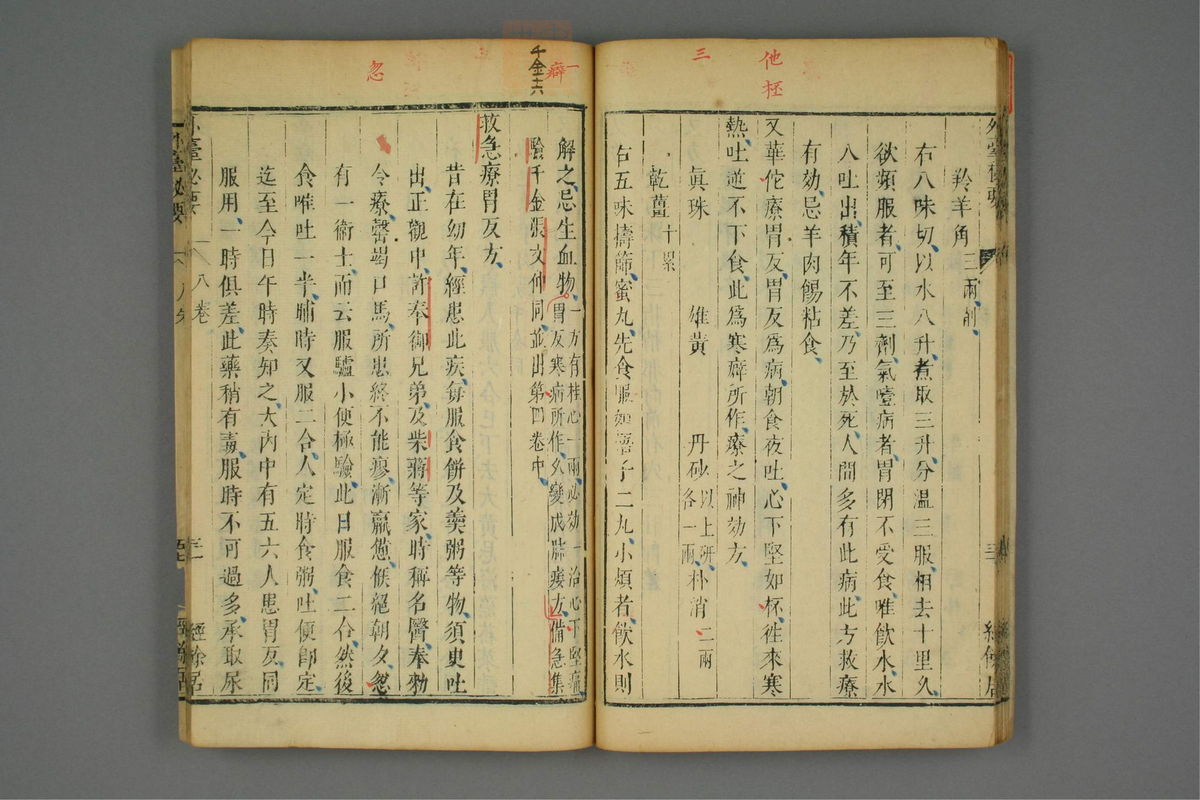 他
柸
三
羚羊角三兩削
右八味切以水八升煮取三升分溫三服相去十里久
欲頻服者可至三劑氣噎病者胃閉不受食唯飲水水
入吐出積年不差乃至於死人間多有此病此方救療
有効忌羊肉餳粘食
又華佗療胃反胃反爲病朝食夜吐心下堅如杯徃來寒
熱吐逆不下食此爲寒癖所作療之神効方
眞珠 雄黃 丹砂以上研各一兩 朴消二兩
乾薑十累
右五味擣篩蜜丸先食服如梧子二丸小煩者飲水則
千金十六
癖
一
忽
解之忌生血物一方有桂心一兩必効一治心下堅痛
胃反寒病所作久變成肺痿方備急集
驗千金張文仲同並出第四卷中
救急療胃反方
昔在幼年經患此疾每服食餅及羹粥等物須臾吐
出正觀中許奉御兄弟及柴蔣等家時稱名醫奉勑
令療罄竭口馬所患終不能瘳漸羸憊候絕朝夕忽
有一衛士而云服驢小便極驗此日服食二合然後
食唯吐一半晡時又服二合人定時食粥吐便即定
迄至今日午時奏知之大內中有五六人患胃反同
服用一時俱差此藥稍有毒服時不可過多承取尿
外臺秘要
八卷
經餘居